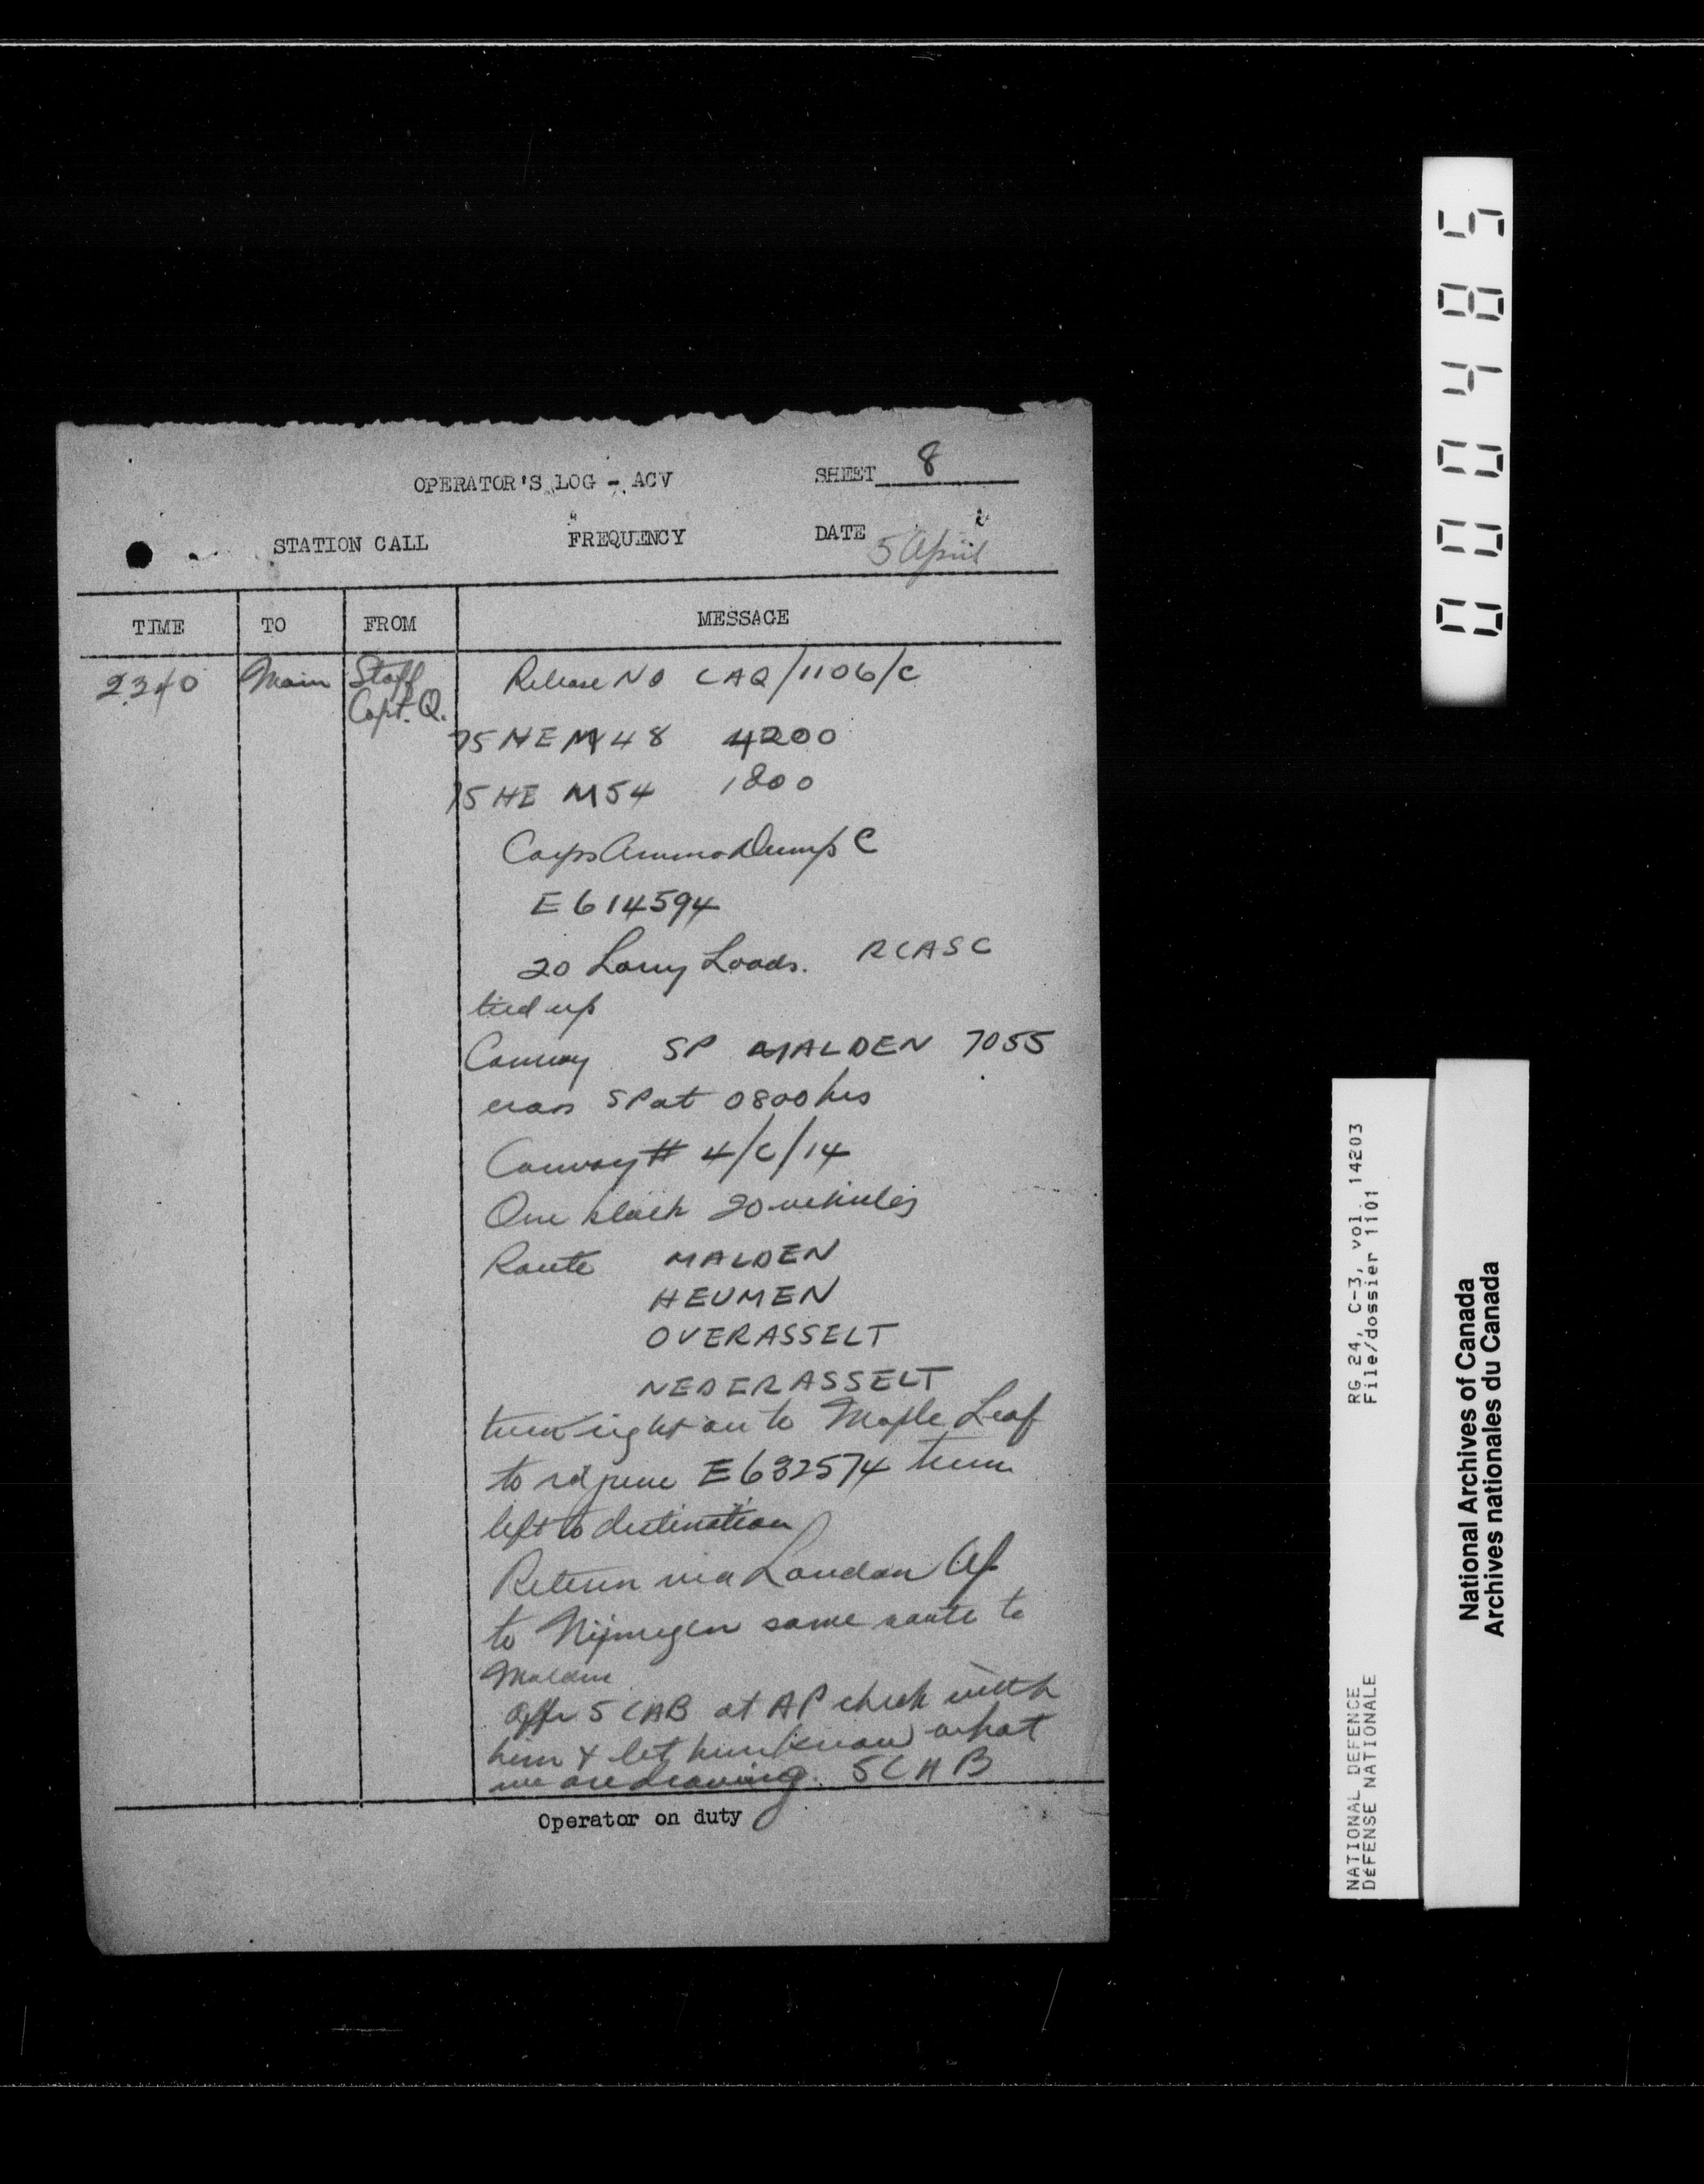 OPERATOR'S LOG - ACV SHEET 8
STATION CALL FREQUENCY DATE 5 April
TIME TO FROM MESSAGE
2340 Main Staff Capt. Q. Release No CAQ/1106/C
75 HE M48 4200
75 HE M54 1800
Corps Ammo Dump C
E 614594
20 Lorry Loads. RCASC
tied up
Convoy SP MALDEN 7055
cross SP at 0800 hrs
Convoy # 4/C/14
One block 20 vehicles
Route MALDEN
HEUMEN
OVERASSELT
NEDERASSELT
turn right on to Maple Leaf
to rd junc E632574 turn
left to destination
Return via London
to Nijmegen same route to
Malden
Offr 5 CAB at AP check with
him & let him know what
we are drawing. 5 CAB
Operator on duty
000485
RG 24, C-3, vol. 14203
File/dossier 1101
NATIONAL DEFENCE
DÉFENSE NATIONALE
National Archives of Canada
Archives nationales du Canada